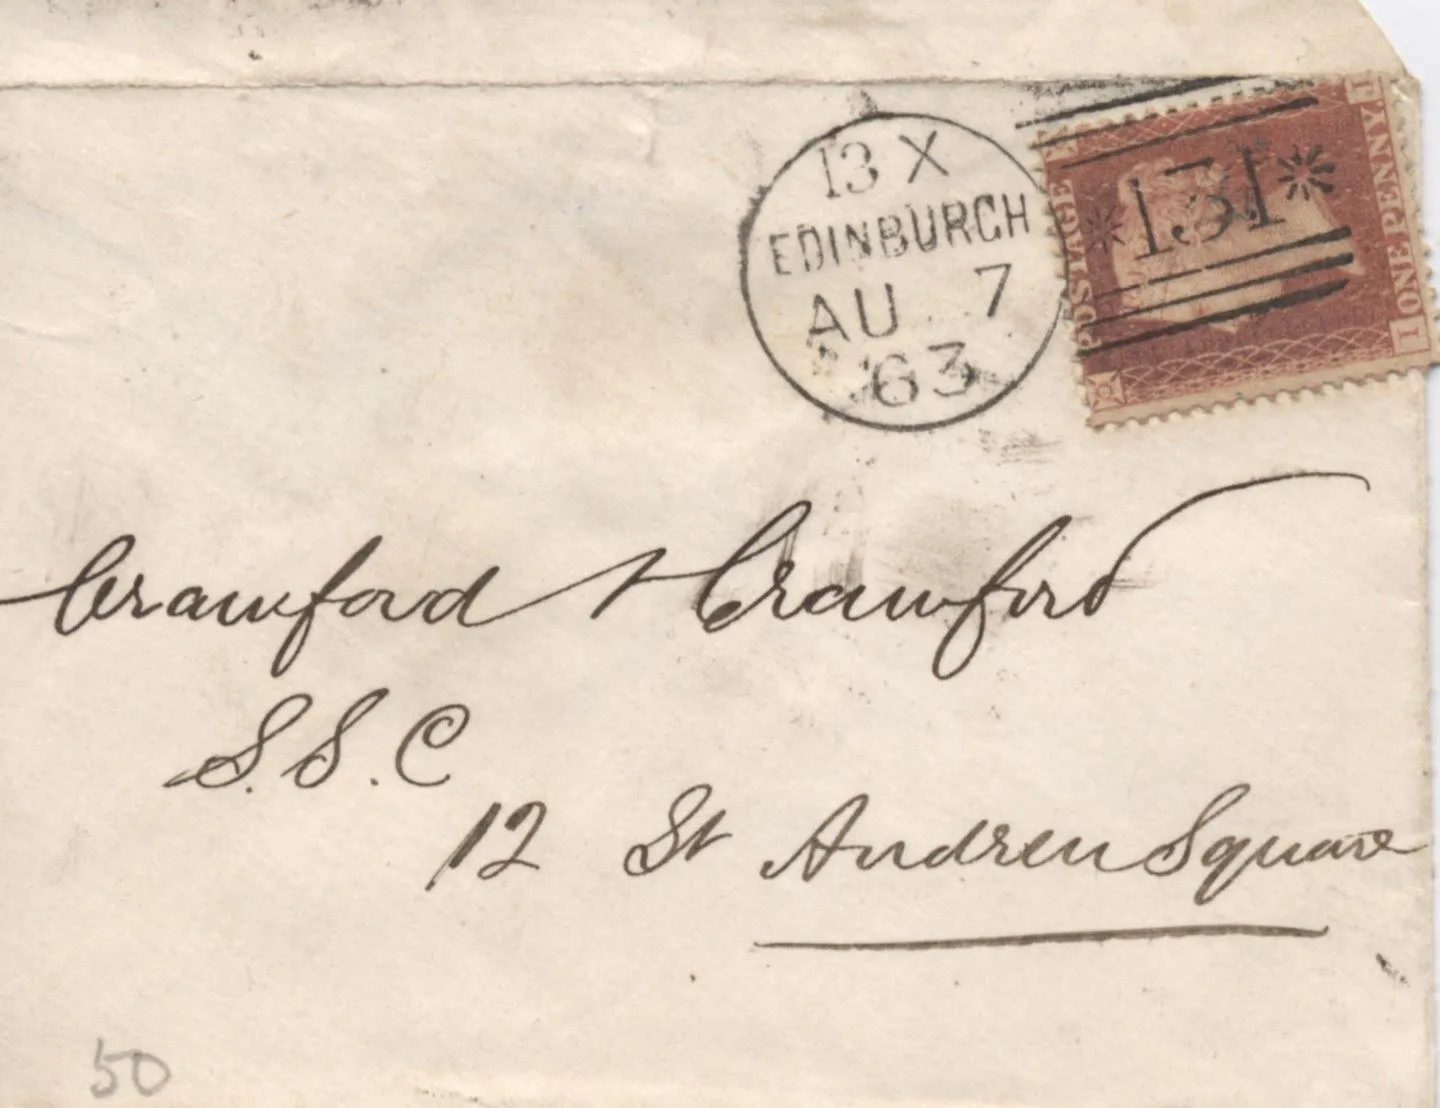 13 X
EDINBURCH
AU 7
63
*131*
POSTAGE
ONE PENNY
T
I
Crawford & Crawford
S.S.C
12 St Andrew Square
50